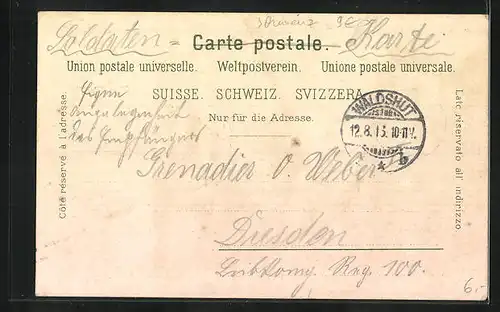 Schweiz
Soldaten = Carte postale. Karte
Union postale universelle. Weltpostverein. Unione postale universale.
SUISSE. SCHWEIZ. SVIZZERA.
Nur für die Adresse.
Côté réservé à l'adresse.
Eigene
Angelegenheit
des Empfängers
WALDSHUT
12.8.15. 10-11V.
* b
Lato riservato all' indirizzo.
Grenadier O. Weber
Dresden
Leibkomp. Reg. 100.
6.-